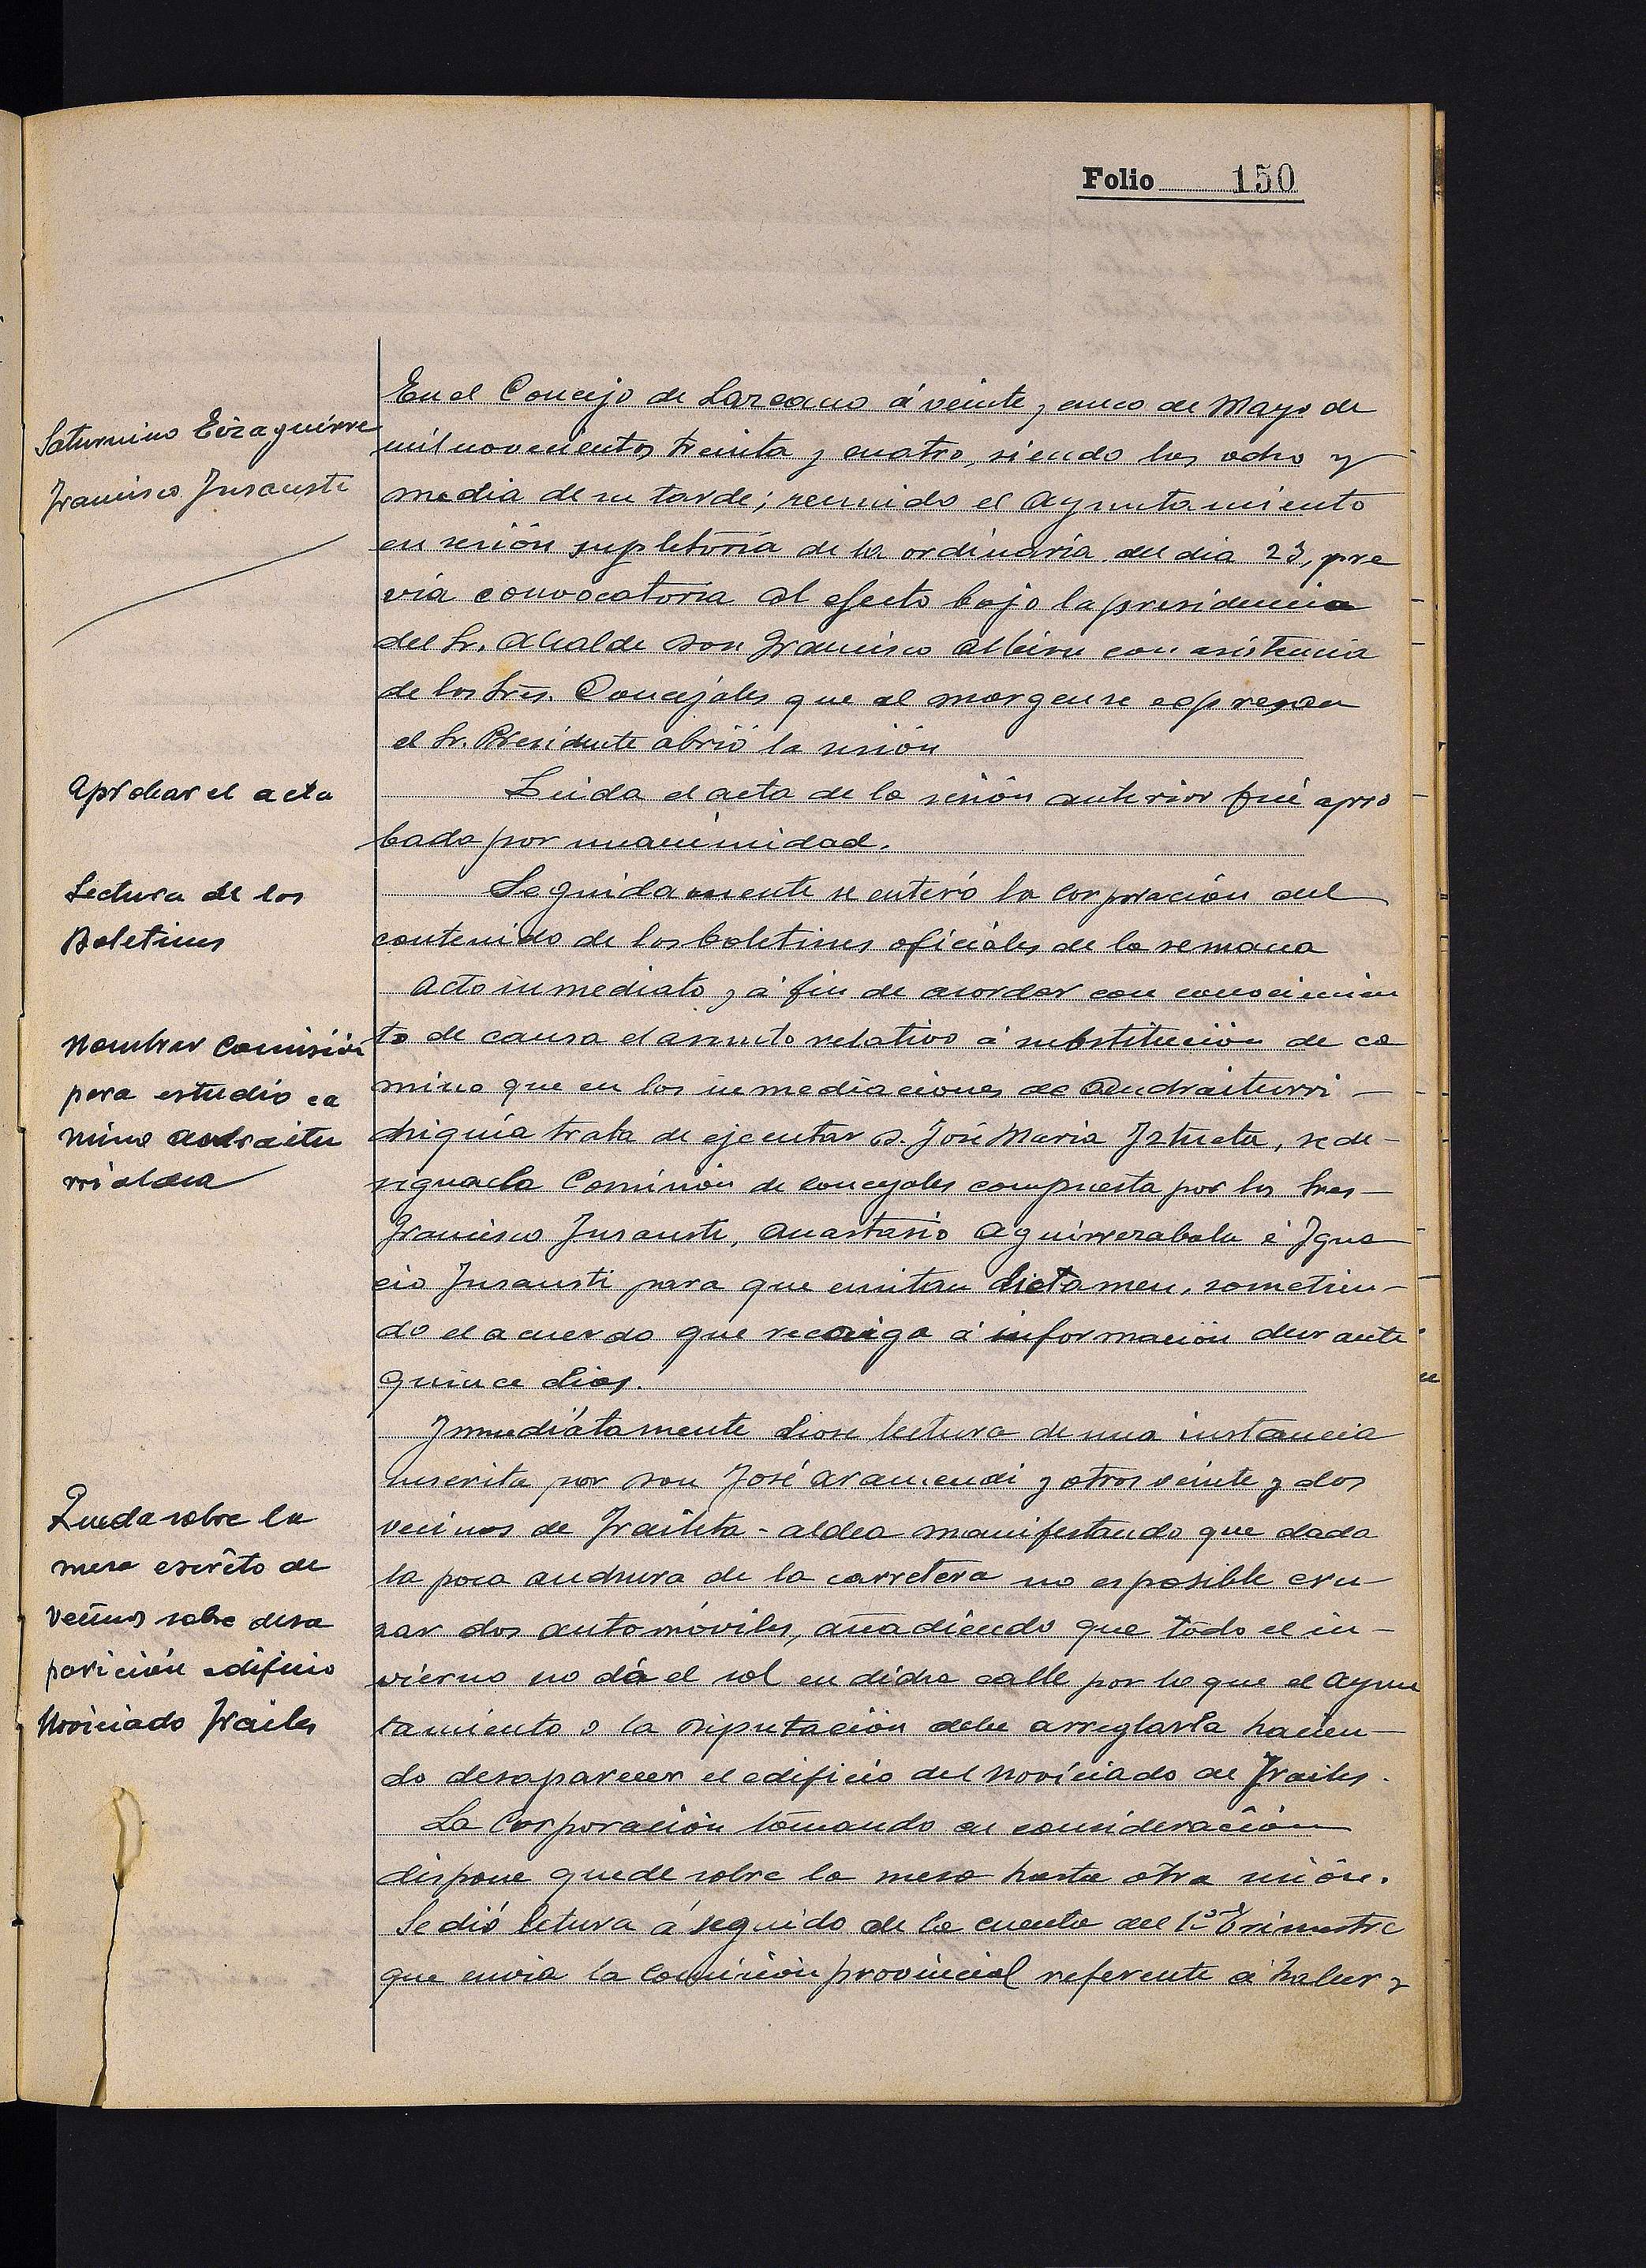 Folio 150
Saturnino Eizaguirre
Francisco Insausti
En el Concejo de Lazcano á veinte y cinco de Mayo de
mil novecientos treinta y cuatro, siendo las ocho y
media de su tarde; reunido el Ayuntamiento
en sesión supletoria de la ordinaria del dia 23, pre
via convocatoria al efecto bajo la presidencia
del Sr. Alcalde Don Francisco Albisu con asistencia
de los Sres. Concejales que al margen se expresan
el Sr. Presidente abrió la sesión
Aprobar el acta
Leida el acta de la sesión anterior fué apro
bada por unanimidad.
Lectura de los
Boletines
Seguidamente se enteró la Corporación del
contenido de los boletines oficiales de la semana
Nombrar Comisión
para estudio ca
mino Andraitu
rrialdea
Acto inmediato y á fin de acordar con conocimien
to de causa el asunto relativo á substitución de ca
mino que en los inmediaciones de Andraiturri
chiquia trata de ejecutar D. José Maria Iztueta, se de-
signa la Comisión de concejales compuesta por los Sres-
Francisco Insausti, Anastasio Aguirrezabala é Igna
cio Insausti para que emitan dictamen, sometien-
do el acuerdo que recaiga á información durante
quince dias.
Queda sobre la
mesa escrito de
vecinos sobre desa
parición edificio
Noviciado Frailes
Inmediátamente diose lectura de una instancia
suscrita por Don José Aramendi y otros veinte y dos
vecinos de Fraileta-aldea manifestando que dada
la poca anchura de la carretera no es posible cru-
zar dos automóviles, añadiendo que todo el in-
vierno no dá el sol en dicha calle por lo que el Ayun
tamiento o la Diputación debe arreglarla hacien-
do desaparecer el edificio del Noviciado de Frailes.
La Corporación tomando en consideración
dispone quede sobre la mesa hasta otra sesión.
Se dió letura á seguido de la cuenta del 1er Trimestre
que envia la Comisión provincial referente á haber y